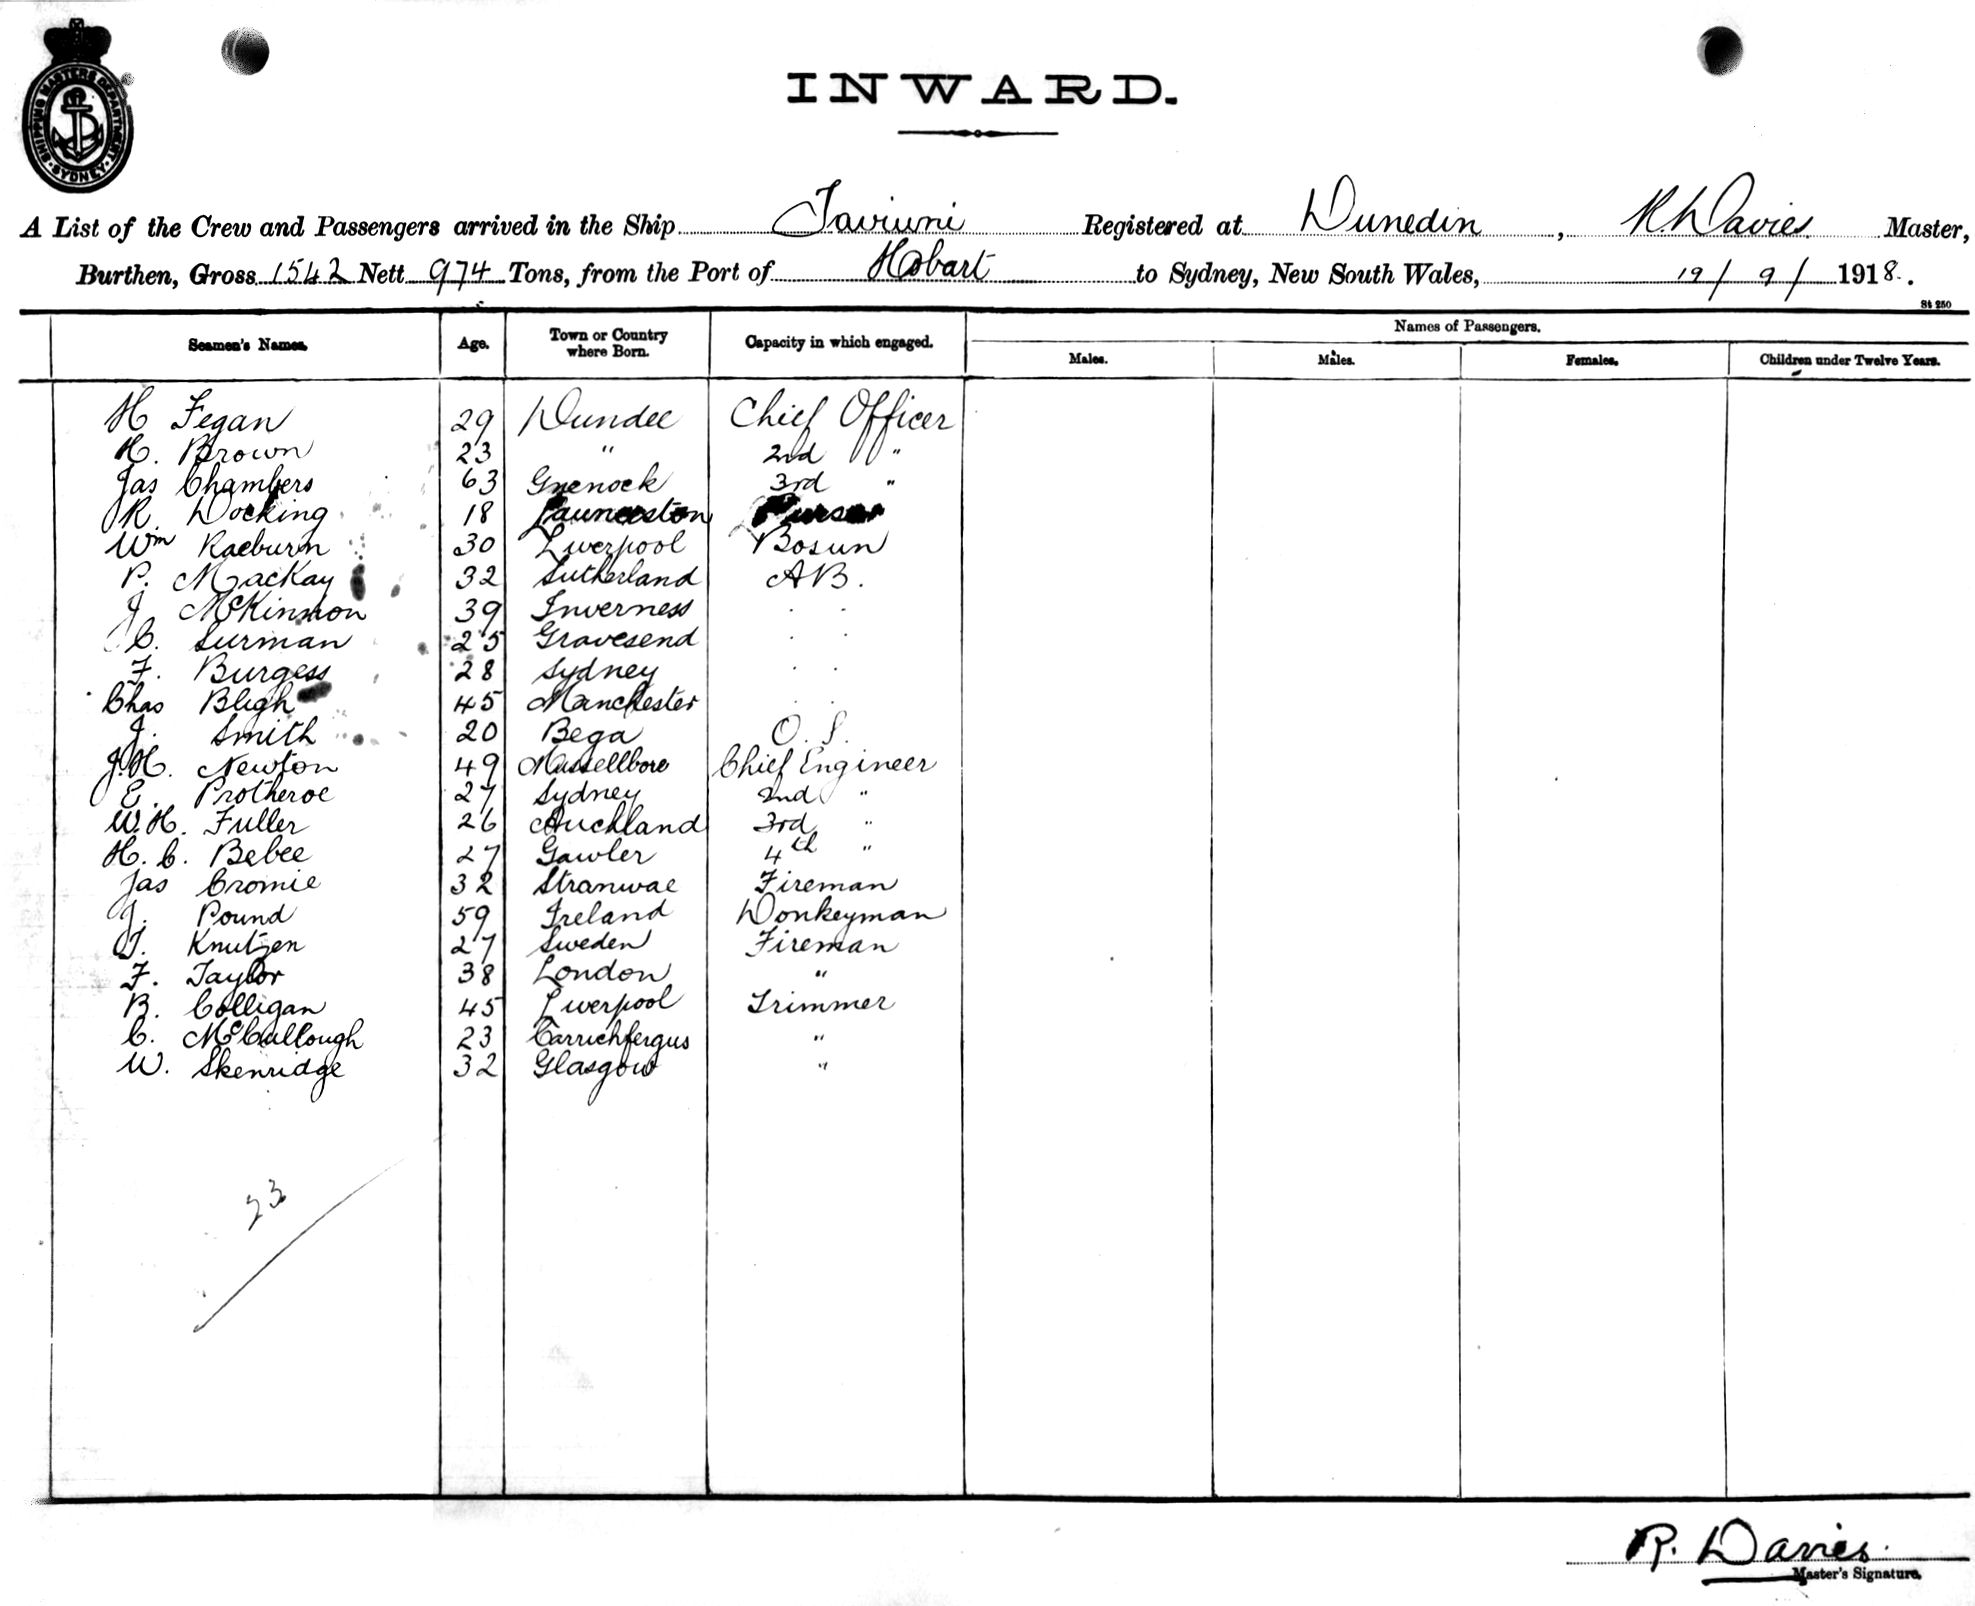 SHIPPING MASTERS DEPARTMENT · SYDNEY ·
INWARD.
A List of the Crew and Passengers arrived in the Ship Taviuni Registered at Dunedin, R. Davies Master,
Burthen, Gross 1542 Nett 974 Tons, from the Port of Hobart to Sydney, New South Wales, 19/9/1918.
St 250
Seamen's Names. Age. Town or Country where Born. Capacity in which engaged. Names of Passengers.
Males. Males. Females. Children under Twelve Years.
H Fegan 29 Dundee Chief Officer
H. Brown 23 " 2nd "
Jas Chambers 63 Greenock 3rd "
R. Docking 18 Launceston Purser
Wm Raeburn 30 Liverpool Bosun
P. MacKay 32 Sutherland AB.
J McKinnon 39 Inverness . .
C. Surman 25 Gravesend . .
F. Burgess 28 Sydney . .
Chas Bligh 45 Manchester . .
J. Smith 20 Bega O.S.
J.H. Newton 49 Chief Engineer
E. Protheroe 27 Sydney 2nd "
W.H. Fuller 26 Auckland 3rd "
H.C. Bebee 27 Gawler 4th "
Jas Cromie 32 Stranwae Fireman
J. Pound 59 Ireland Donkeyman
J. Knutzen 27 Sweden Fireman
F. Taylor 38 London "
B. Colligan 45 Liverpool Trimmer
C. McCullough 23 Carrichfergus "
W. Skenridge 32 Glasgow "
23
R. Davies.
Master's Signature.